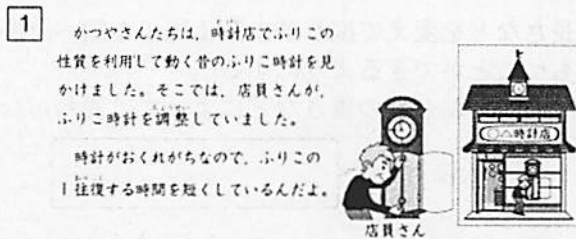 1
かつやさんたちは、時計店でふりこの
性質を利用して動く昔のふりこ時計を見
かけました。そこでは、店員さんが、
ふりこ時計を調整していました。
時計がおくれがちなので、ふりこの
1往復する時間を短くしているんだよ。
〇八時計店
店員さん